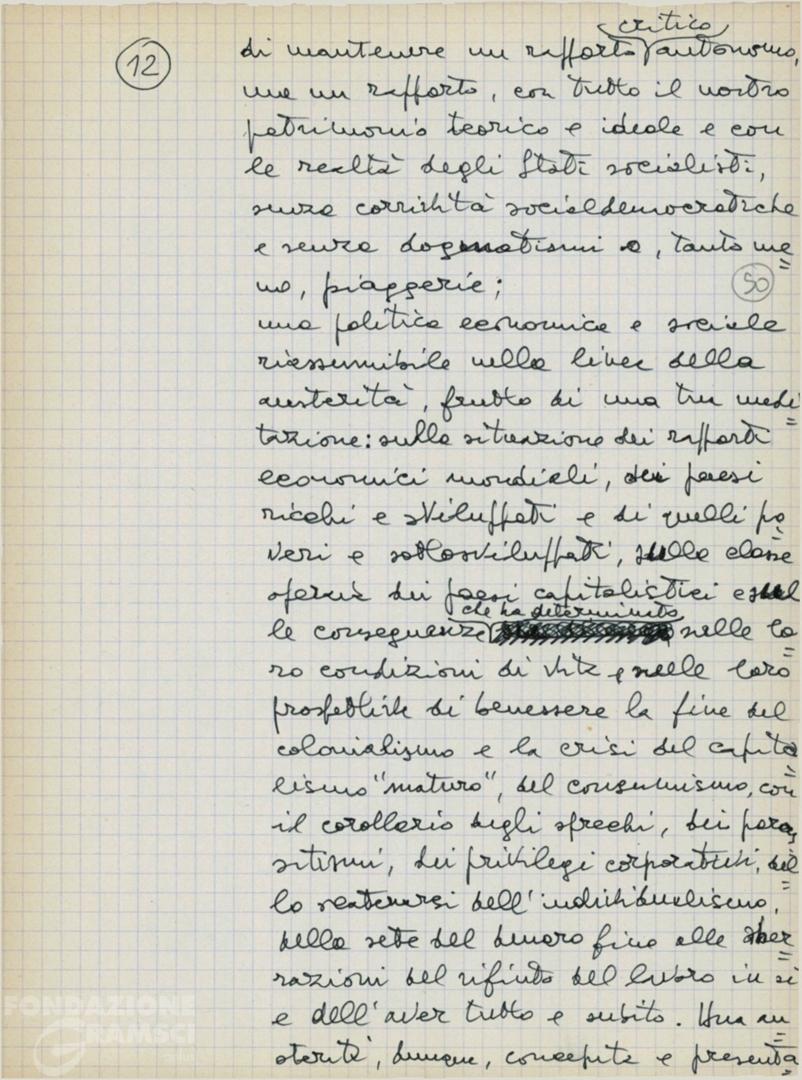 12
critico
di mantenere un rapporto autonomo,
ma un rapporto, con tutto il nostro
patrimonio teorico e ideale e con
le realtà degli Stati socialisti,
senza corrività socialdemocratiche
e senza dogmatismi o, tanto me=
no, piaggerie;
50
una politica economica e sociale
riassumibile nella linea della
austerità, frutto di una tua medi=
tazione: sulla situazione dei rapporti
economici mondiali, dei paesi
ricchi e sviluppati e di quelli po=
veri e sottosviluppati, sulla classe
operaia dei paesi capitalistici e sul=
che ha determinato
le conseguenze nelle lo=
ro condizioni di vita e nelle loro
prospettive di benessere la fine del
colonialismo e la crisi del capita=
lismo "maturo", del consumismo, con
il corollario degli sprechi, dei paras=
sitismi, dei privilegi corporativi, del=
lo scatenarsi dell'individualismo,
della sete del denaro fino alle aber=
razioni del rifiuto del lavoro in sé
e dell'aver tutto e subito. Una au=
sterità, dunque, concepita e presenta=
FONDAZIONE
GRAMSCI